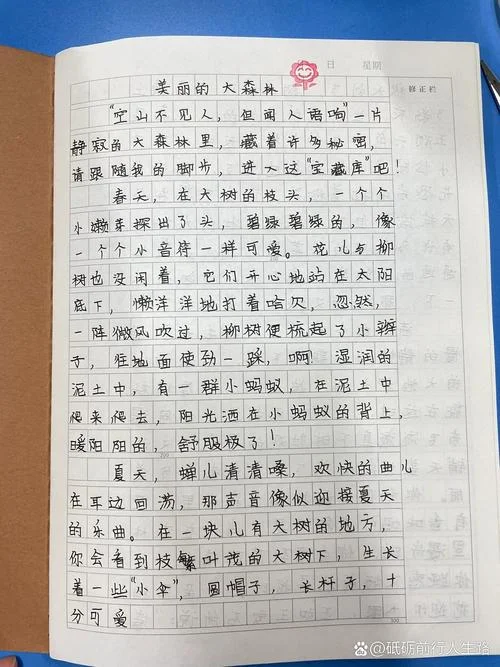 日 星期
美丽的大森林 修正栏
“空山不见人,但闻人语响”一片
静寂的大森林里,藏着许多秘密,
请跟随我的脚步,进入这“宝藏库”吧!
春天,在大树的枝头,一个个
小嫩芽探出了头,碧绿碧绿的,像
一个个小音符一样可爱。花儿与柳
树也没闲着,它们开心地站在太阳
底下,懒洋洋地打着哈欠,忽然,
一阵微风吹过,柳树便梳起了小辫
子,往地面使劲一踩,啊!湿润的
泥土中,有一群小蚂蚁,在泥土中
爬来爬去,阳光洒在小蚂蚁的背上,
暖阳阳的,舒服极了!
200
夏天,蝉儿清清嗓,欢快的曲儿
在耳边回荡,那声音像似迎接夏天
的乐曲。在一块儿有大树的地方,
你会看到枝繁叶茂的大树下,生长
着一些“小伞”,圆帽子,长杆子,十
分可爱
300
百家号/砥砺前行人生路